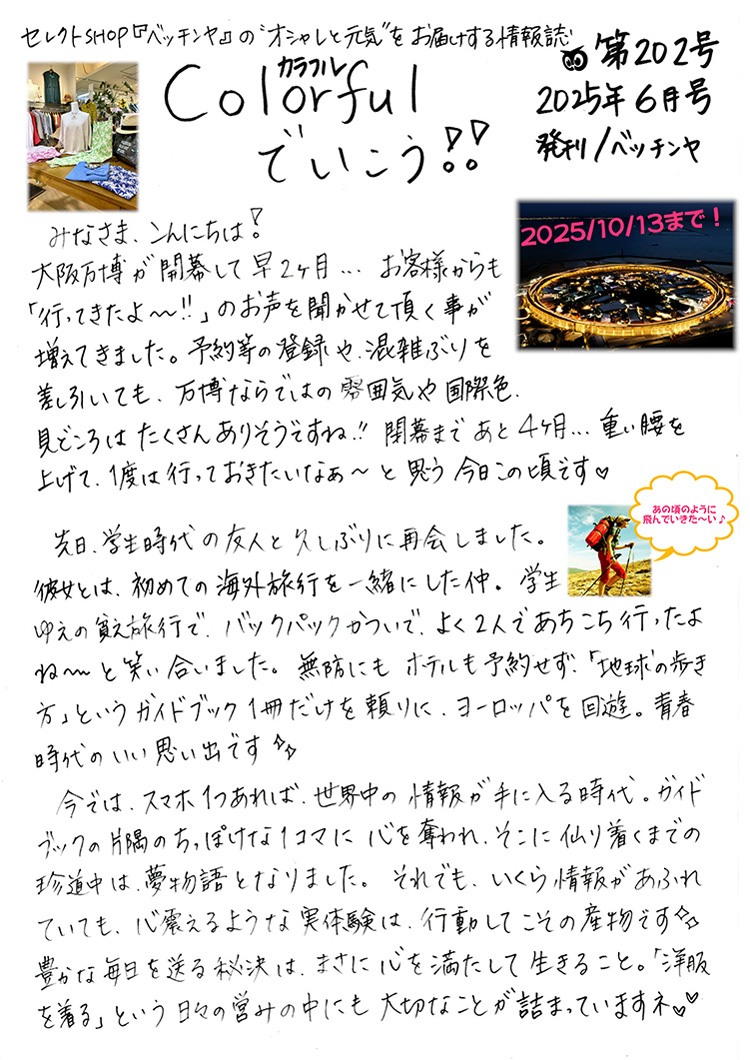 セレクトSHOP『ベッチンヤ』の“オシャレと元気”をお届けする情報誌
カラフル
Colorful
でいこう!!
第202号
2025年6月号
発刊/ベッチンヤ
2025/10/13まで!
みなさま、こんにちは!
大阪万博が開幕して早2ヶ月… お客様からも
「行ってきたよ〜!!」のお声を聞かせて頂く事が
増えてきました。予約等の登録や、混雑ぶりを
差し引いても、万博ならではの雰囲気や国際色、
見どころはたくさんありそうですね!! 閉幕まであと4ヶ月… 重い腰を
上げて、1度は行っておきたいなぁ〜と思う今日この頃です♡
あの頃のように
飛んでいきた〜い♪
先日、学生時代の友人と久しぶりに再会しました。
彼女とは、初めての海外旅行を一緒にした仲。学生
ゆえの貧乏旅行で、バックパックかついで、よく2人であちこち行ったよ
ね〜と笑い合いました。無防にもホテルも予約せず、「地球の歩き
方」というガイドブック1冊だけを頼りに、ヨーロッパを回遊。青春
時代のいい思い出です
今では、スマホ1つあれば、世界中の情報が手に入る時代。ガイド
ブックの片隅のちっぽけな1コマに心を奪われ、そこに辿り着くまでの
珍道中は、夢物語となりました。それでも、いくら情報があふれ
ていても、心震えるような実体験は、行動してこその産物です
豊かな毎日を送る秘決は、まさに心を満たして生きること。「洋服
を着る」という日々の営みの中にも大切なことが詰まっていますネ♡